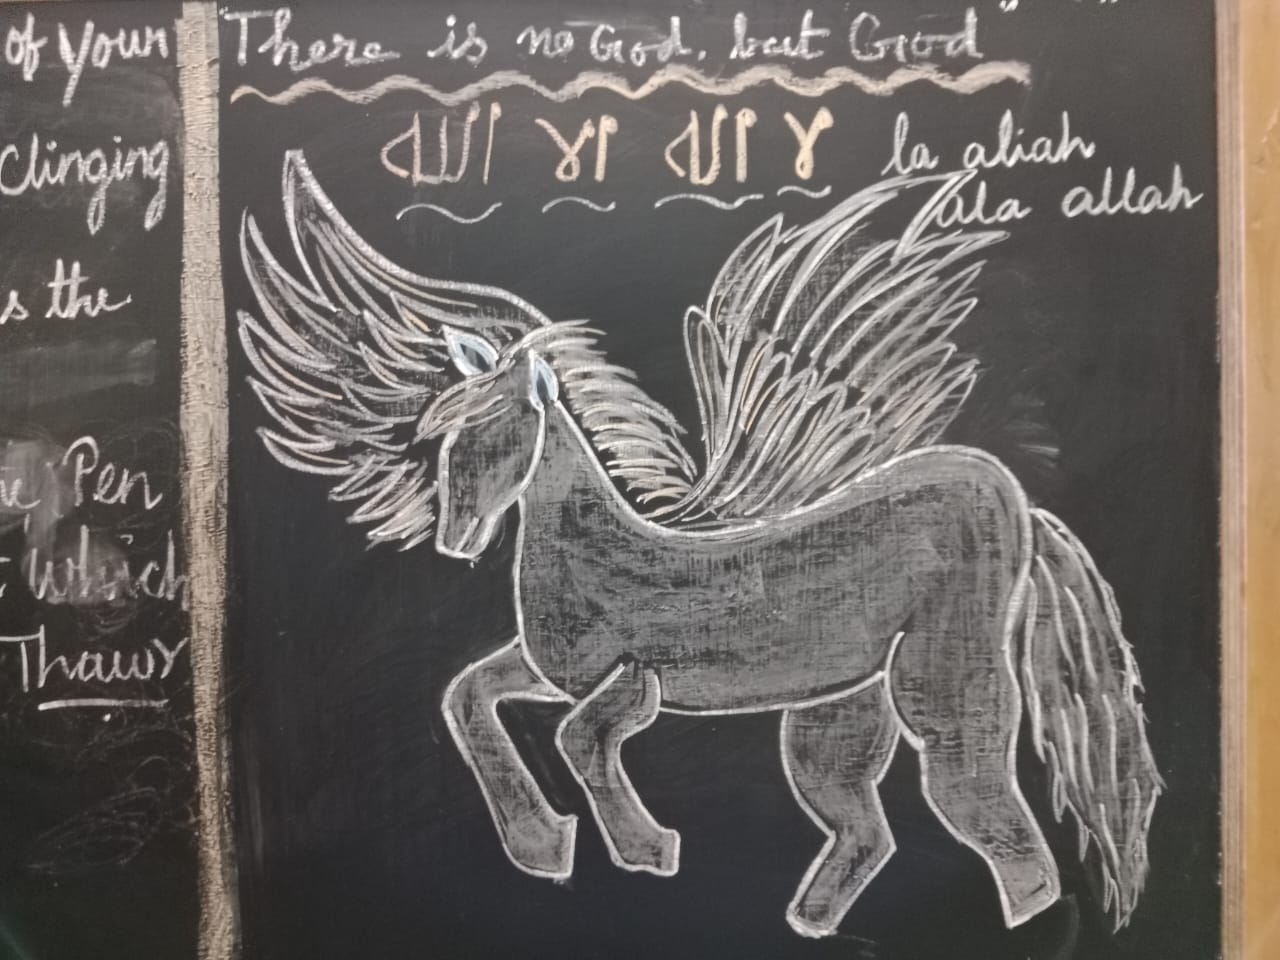 of Your
Clinging
s the
Pen
Which
Thawr
"There is no God, but God"
لا الله الا الله
la aliah
ala allah